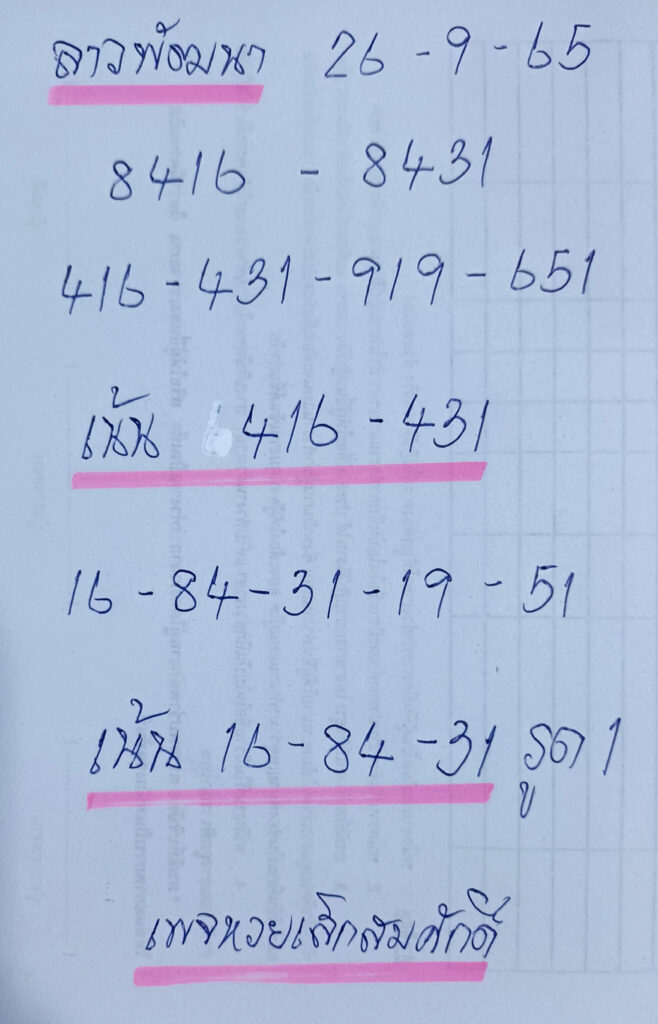 ลาวพัฒนา 26 - 9 - 65
8416 - 8431
416 - 431 - 919 - 651
เน้น 416 - 431
16 - 84 - 31 - 19 - 51
เน้น 16 - 84 - 31 รูด 1
เพจหวยเสี่กสมศักดิ์